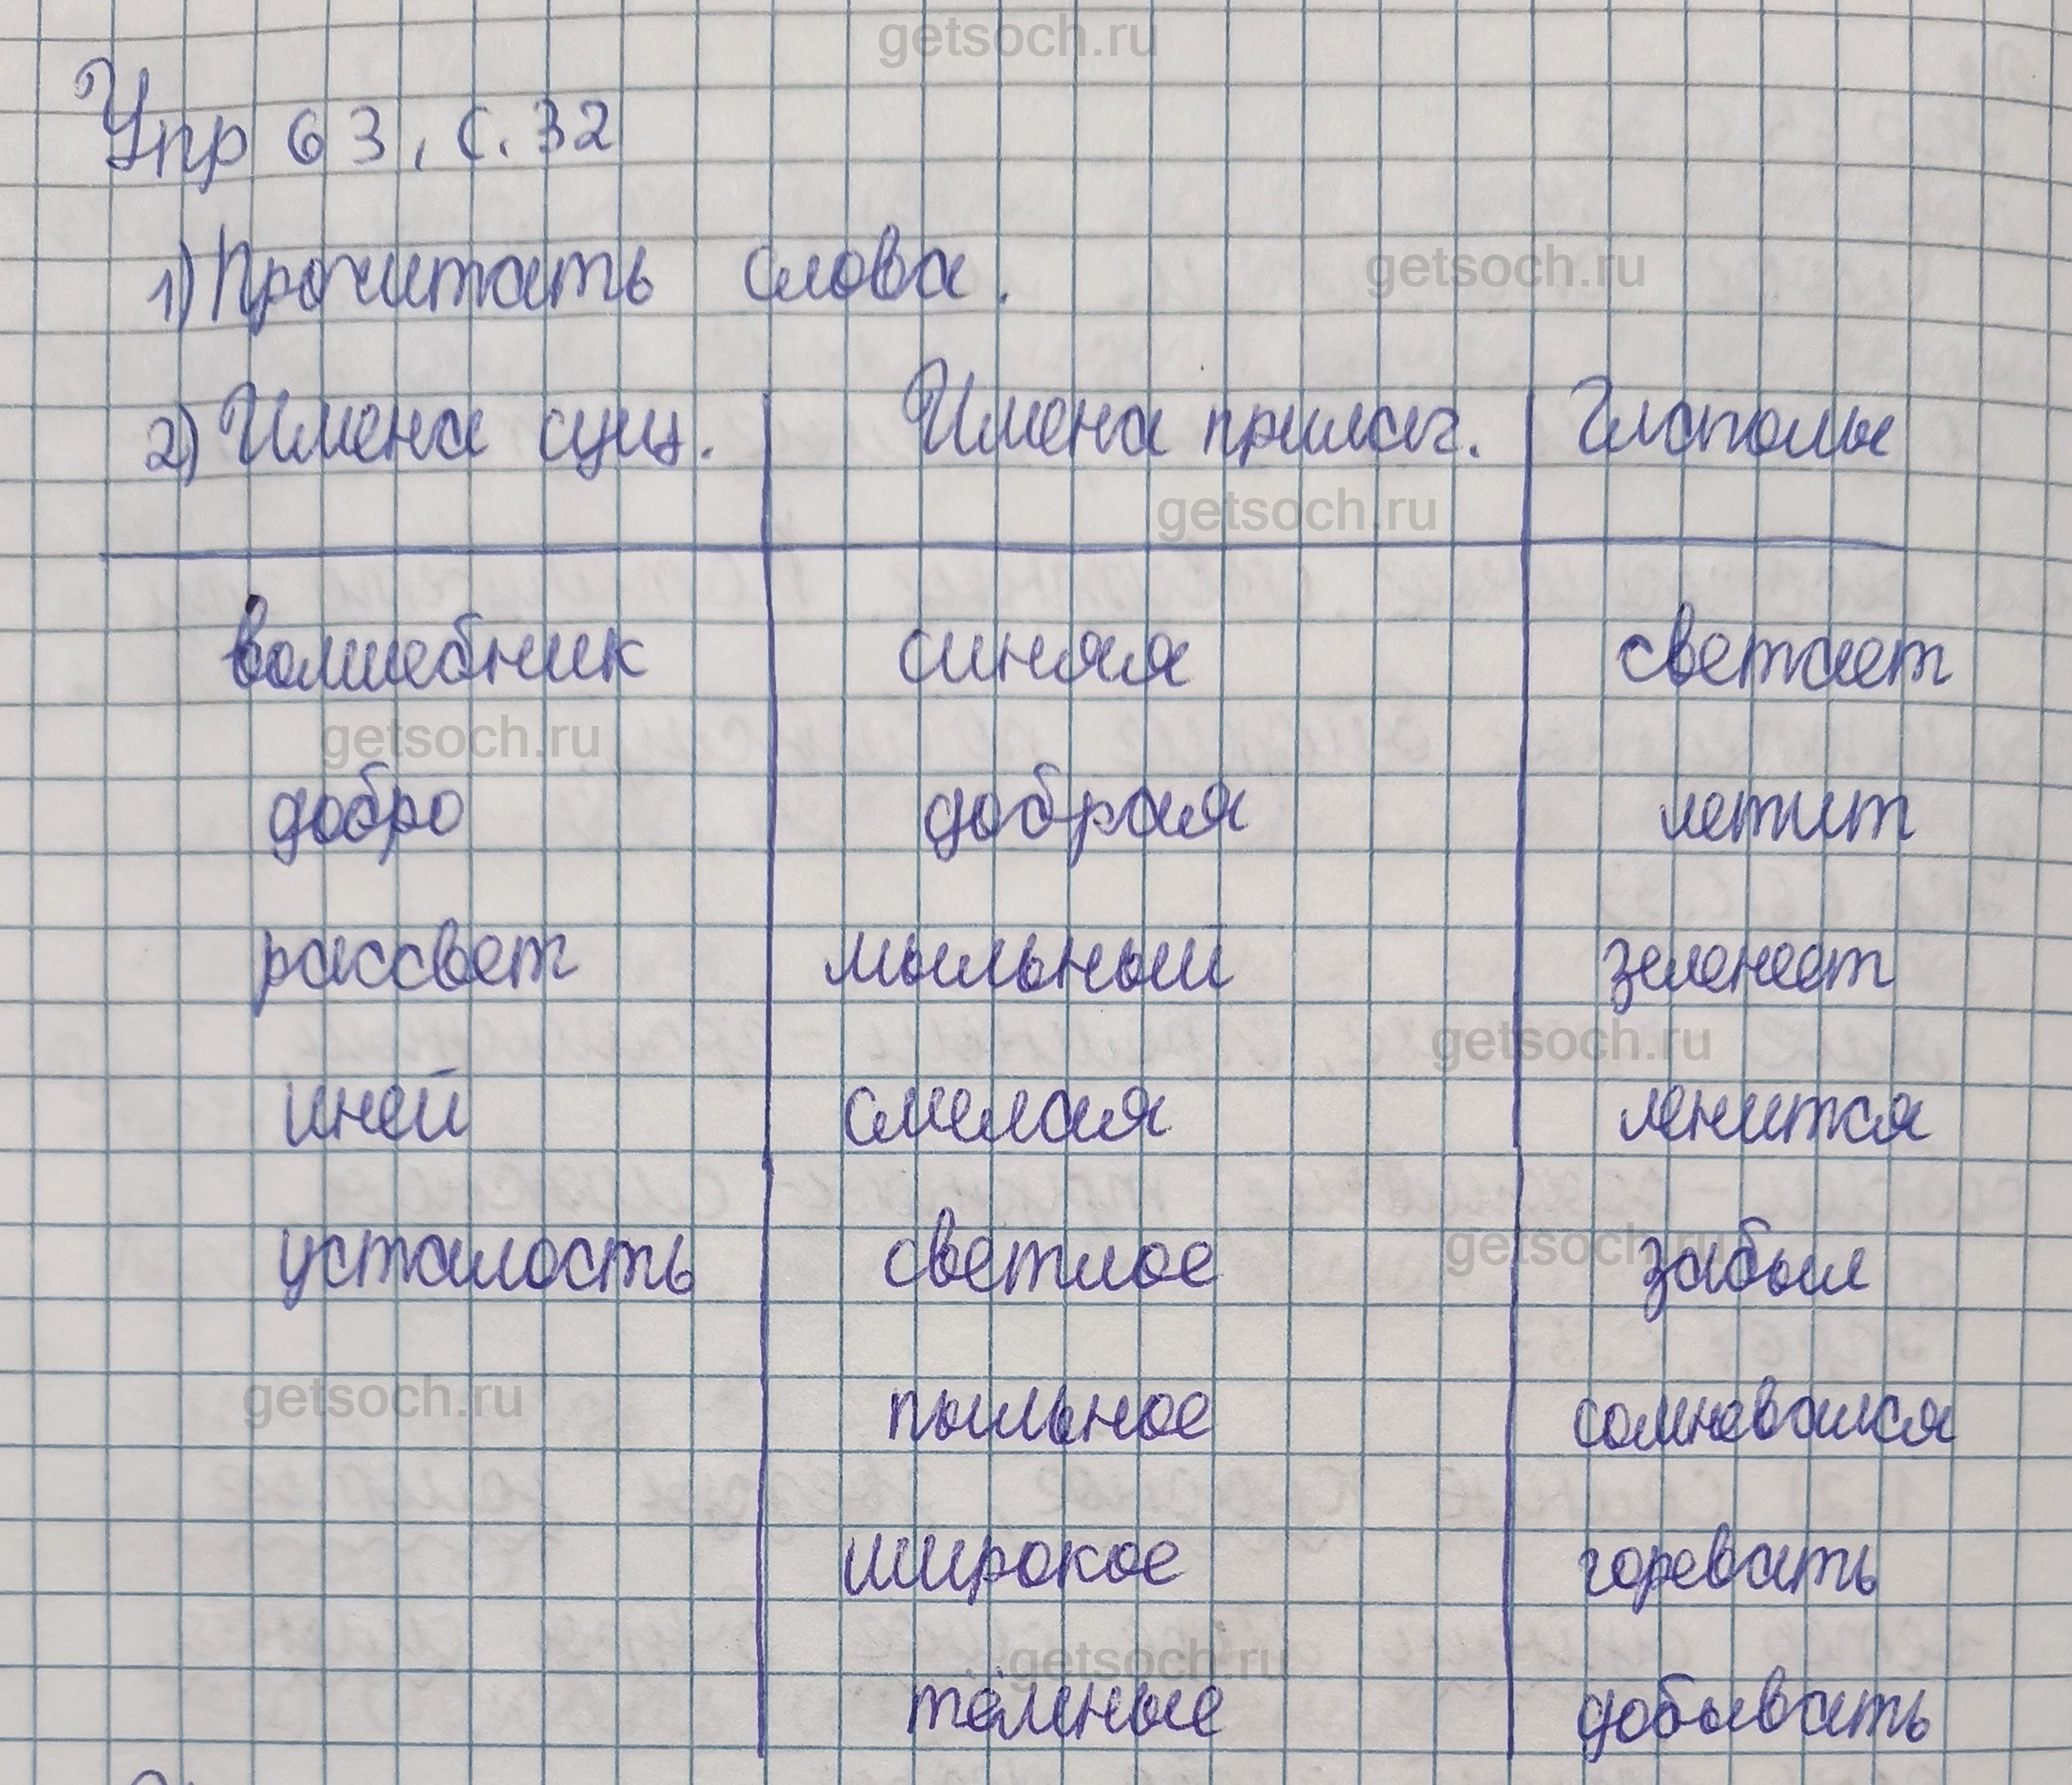 getsoch.ru
Упр 63, с. 32
1) Прочитать слова.
getsoch.ru
2) Имена сущ. Имена прилаг. Глаголы
getsoch.ru
волшебник синяя светает
getsoch.ru
добро добрая летит
рассвет мыльный зеленеет
getsoch.ru
иней смелая ленится
getsoch.ru
усталость светлое забыл
getsoch.ru
пыльное сомневался
широкое горевать
getsoch.ru
тёмные добывать